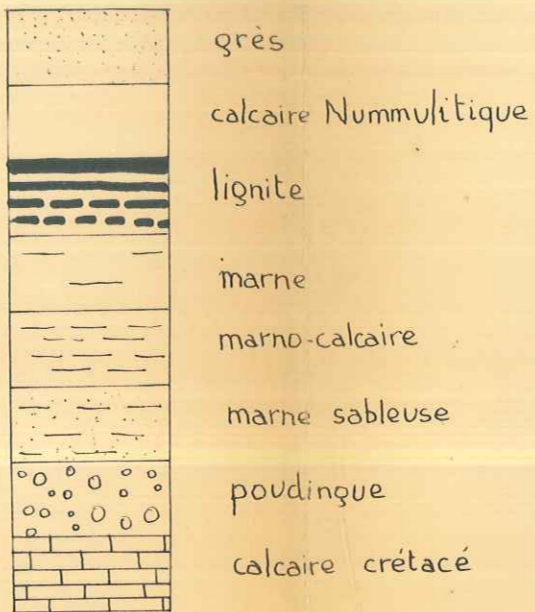 grès
calcaire Nummulitique
lignite
marne
marno-calcaire
marne sableuse
poudingue
calcaire crétacé